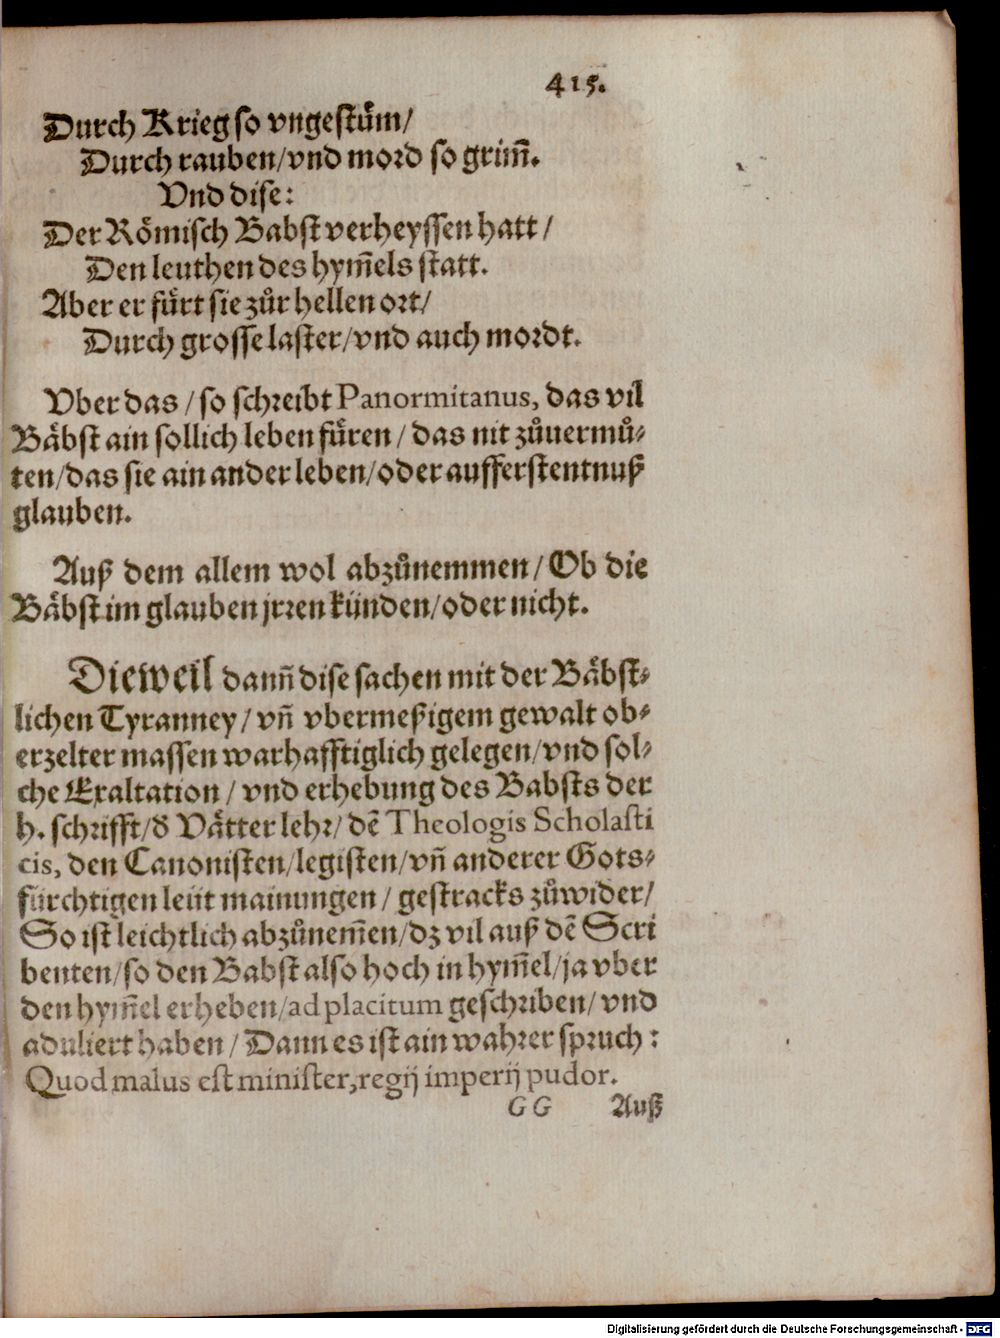 415.
Durch Krieg so vngestům/
Durch rauben/vnd mord so grim̃.
Vnd dise:
Der Römisch Babst verheyssen hatt/
Den leuthen des hym̃els statt.
Aber er fürt sie zůr hellen ort/
Durch grosse laster/vnd auch mordt.
Vber das/so schreibt Panormitanus, das vil
Bäbst ain sollich leben füren/das nit zůuermů⸗
ten/das sie ain ander leben/oder aufferstentnuß
glauben.
Auß dem allem wol abzůnemmen/Ob die
Bäbst im glauben jrren künden/oder nicht.
Dieweil dann̄ dise sachen mit der Bäbst⸗
lichen Tyranney/vn̄ vbermeßigem gewalt ob⸗
erzelter massen warhafftiglich gelegen/vnd sol⸗
che Exaltation/vnd erhebung des Babsts der
h. schrifft/d̕ Vätter lehr/dē Theologis Scholasti
cis, den Canonisten/legisten/vn̄ anderer Gots⸗
fürchtigen leüt mainungen/gestracks zůwider/
So ist leichtlich abzůnem̄en/dz vil auß dē Scri
benten/so den Babst also hoch in hym̃el/ja vber
den hym̃el erheben/ad placitum geschriben/vnd
aduliert haben/Dann es ist ain wahrer spruch:
Quod malus est minister, regij imperij pudor.
GG Auß
Digitalisierung gefördert durch die Deutsche Forschungsgemeinschaft - DFG